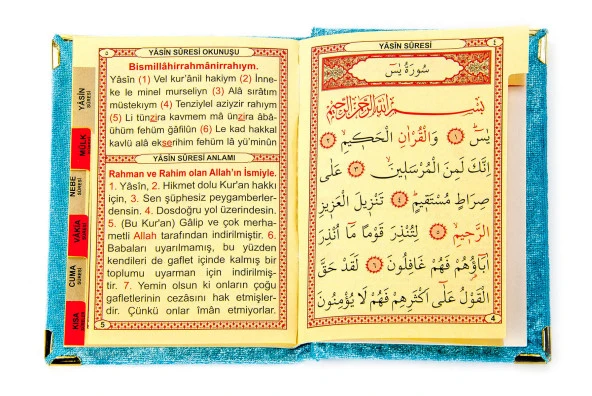 ٥
YÂSİN SÛRESİ OKUNUŞU
Bismillâhirrahmânirrahıym.
Yâsîn (1) Vel kur'ânil hakiym (2) İnne-
ke le minel murseliyn (3) Alâ sırâtım
müstekıym (4) Tenziylel aziyzir rahıym
(5) Li tünzira kavmem mâ ünzira âbâ-
ühüm fehüm ğâfilûn (6) Le kad hakkal
kavlü alâ ekserihim fehüm lâ yü'minûn
YÂSÎN SÛRESİ ANLAMI
Rahman ve Rahim olan Allah'ın İsmiyle.
1. Yâsîn, 2. Hikmet dolu Kur'an hakkı
için, 3. Sen şüphesiz peygamberler-
densin. 4. Dosdoğru yol üzerindesin.
5. (Bu Kur'an) Gâlip ve çok merha-
metli Allah tarafından indirilmiştir. 6.
Babaları uyarılmamış, bu yüzden
kendileri de gaflet içinde kalmış bir
toplumu uyarman için indirilmiş-
tir. 7. Yemin olsun ki onların çoğu
gafletlerinin cezasını hak etmişler-
dir. Çünkü onlar îman etmiyorlar.
5
YÂSİN
SÛRESİ
MÜLK
SÛRESİ
NEBE
SÛRESİ
VAKIA
SÛRESİ
CUMA
SÛRESİ
KISA
YÂSİN SÛRESİ
٤
سُورَةُ يٰسٓ
بِسْمِ اللّٰهِ الرَّحْمٰنِ الرَّحِيمِ
يٰسٓ ﴿١﴾ وَالْقُرْاٰنِ الْحَكِيمِ ﴿٢﴾
اِنَّكَ لَمِنَ الْمُرْسَلِينَ ﴿٣﴾ عَلٰى
صِرَاطٍ مُسْتَقِيمٍ ﴿٤﴾ تَنْزِيلَ الْعَزِيزِ
الرَّحِيمِ ﴿٥﴾ لِتُنْذِرَ قَوْمًا مَٓا اُنْذِرَ
اٰبَٓاؤُ۬هُمْ فَهُمْ غَافِلُونَ ﴿٦﴾ لَقَدْ حَقَّ
الْقَوْلُ عَلٰٓى اَكْثَرِهِمْ فَهُمْ لَا يُؤْمِنُونَ
4